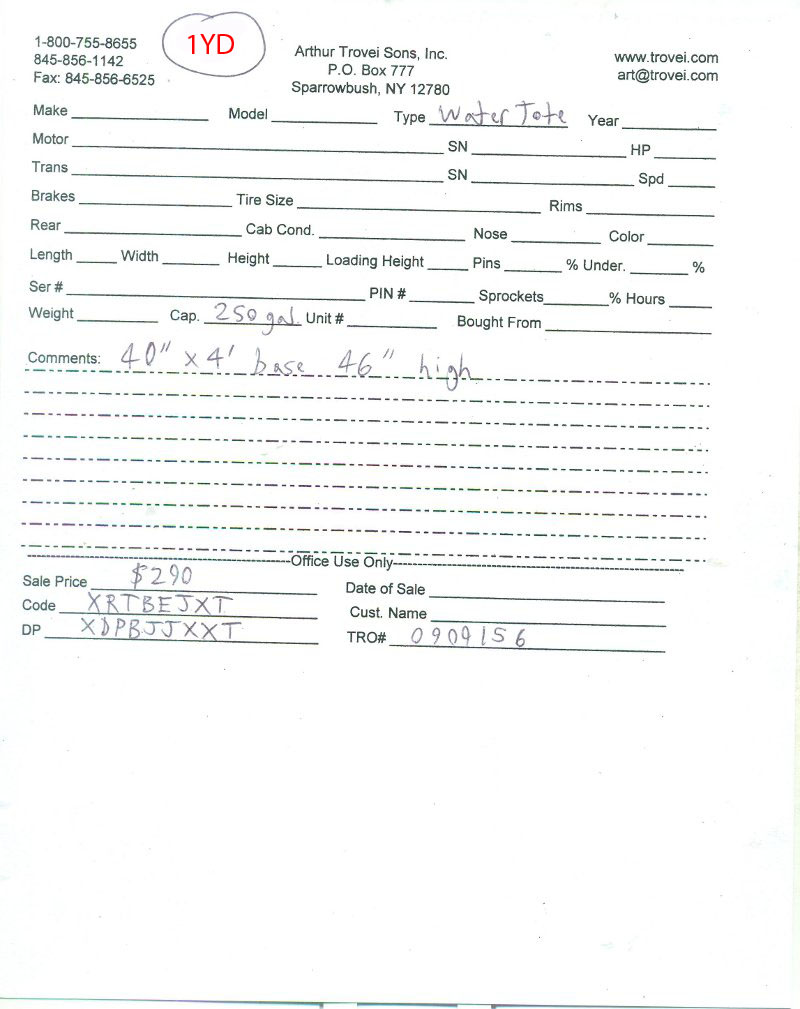 1-800-755-8655
845-856-1142
Fax: 845-856-6525
1YD
Arthur Trovei Sons, Inc.
P.O. Box 777
Sparrowbush, NY 12780
www.trovei.com
art@trovei.com
Make Model Type Water Tote Year
Motor SN HP
Trans SN Spd
Brakes Tire Size Rims
Rear Cab Cond. Nose Color
Length Width Height Loading Height Pins % Under. %
Ser # PIN # Sprockets % Hours
Weight Cap. 250 gal. Unit # Bought From
Comments: 40" x 4' base 46" high
Office Use Only
Sale Price $290 Date of Sale
Code XRTBEJXT Cust. Name
DP XDPBJJXXT TRO# 0909156